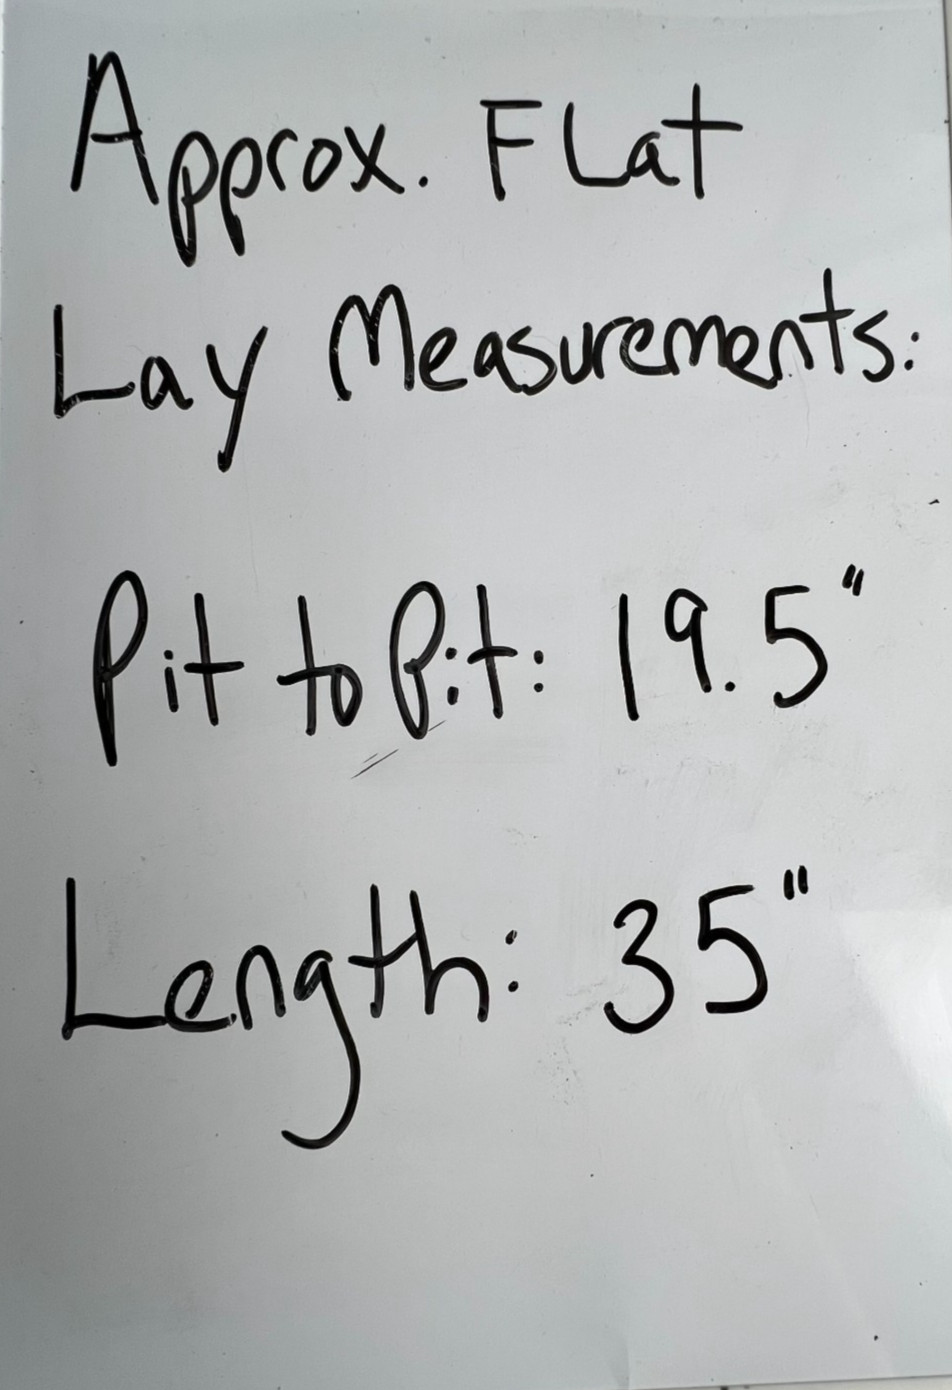 Approx. Flat
Lay Measurements:
Pit to Pit: 19.5"
Length: 35"